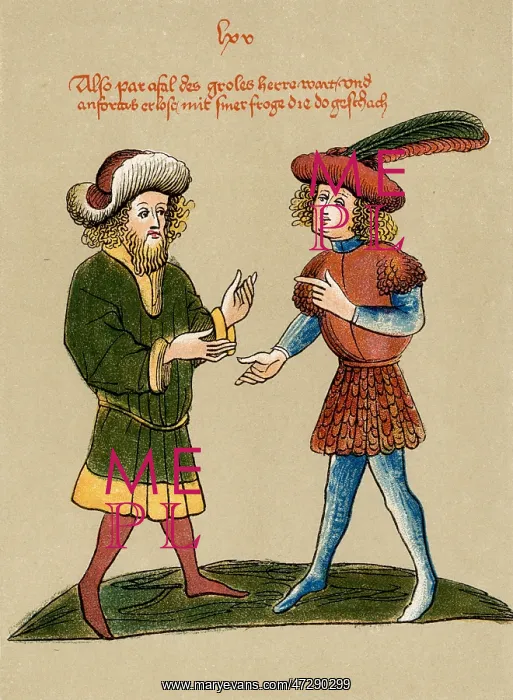 lxv
Also parcifal des groles herre wart vnd
anfortas erlost mit siner froge die do geschach
ME
PL
ME
PL
www.maryevans.com/47290299